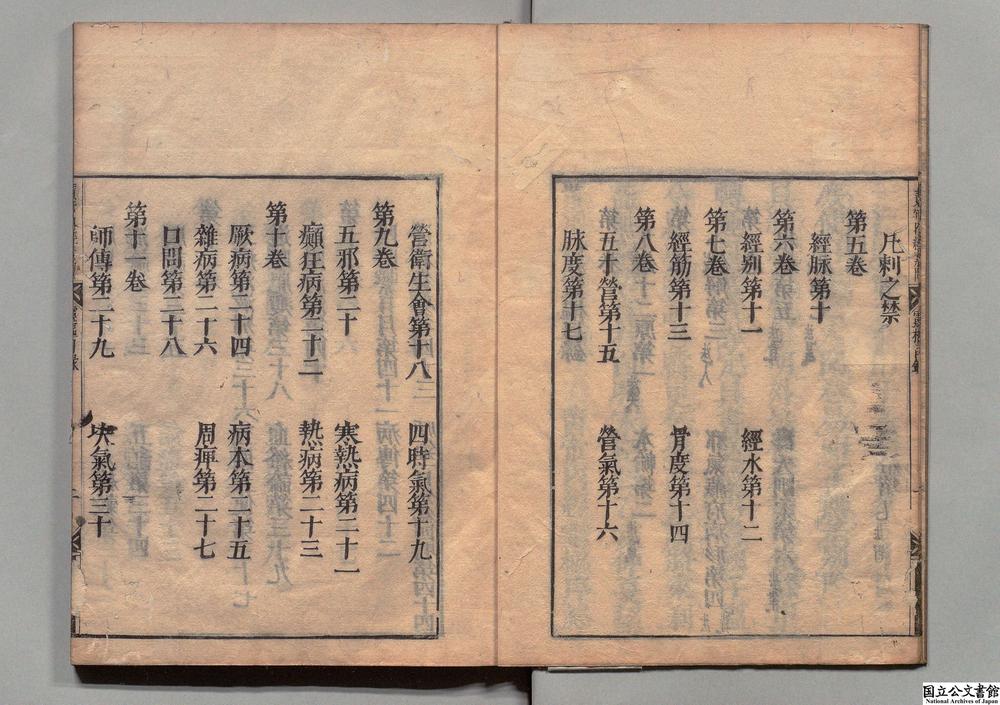 凡刺之禁
第五卷
經脉第十
第六卷
經别第十一 經水第十二
第七卷
經筋第十三 骨度第十四
第八卷
五十營第十五 營氣第十六
脉度第十七
營衛生會第十八 四時氣第十九
第九卷
五邪第二十 寒熱病第二十一
癲狂病第二十二 熱病第二十三
第十卷
厥病第二十四 病本第二十五
雜病第二十六 周痺第二十七
口問第二十八
第十一卷
師傳第二十九 决氣第三十
国立公文書館
National Archives of Japan